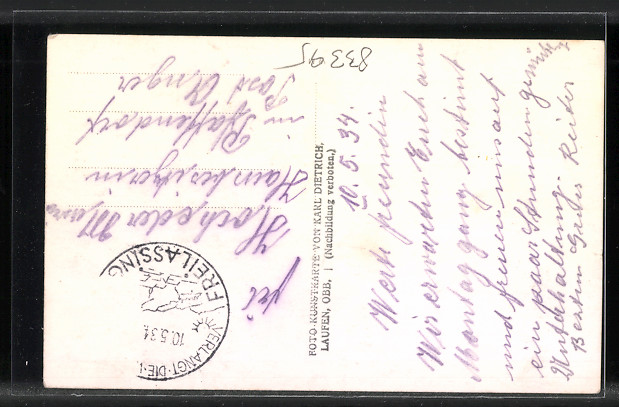 83395
10.5.34.
Werte freundin
Wir erwarden Euch am
Montag ganz bestimmt
und freuen uns auf
ein paar Stunden gemütl.
Unterhaltung.
Reiter
FOTO-KUNSTKARTE VON KARL DIETRICH,
LAUFEN, OBB. | (Nachbildung verboten.)
Hocheder Marie
Hausbesitzerin
in Pfaffendorf
Post Anger
FREILASSING
10.5.34
VERLANGT·DIE·